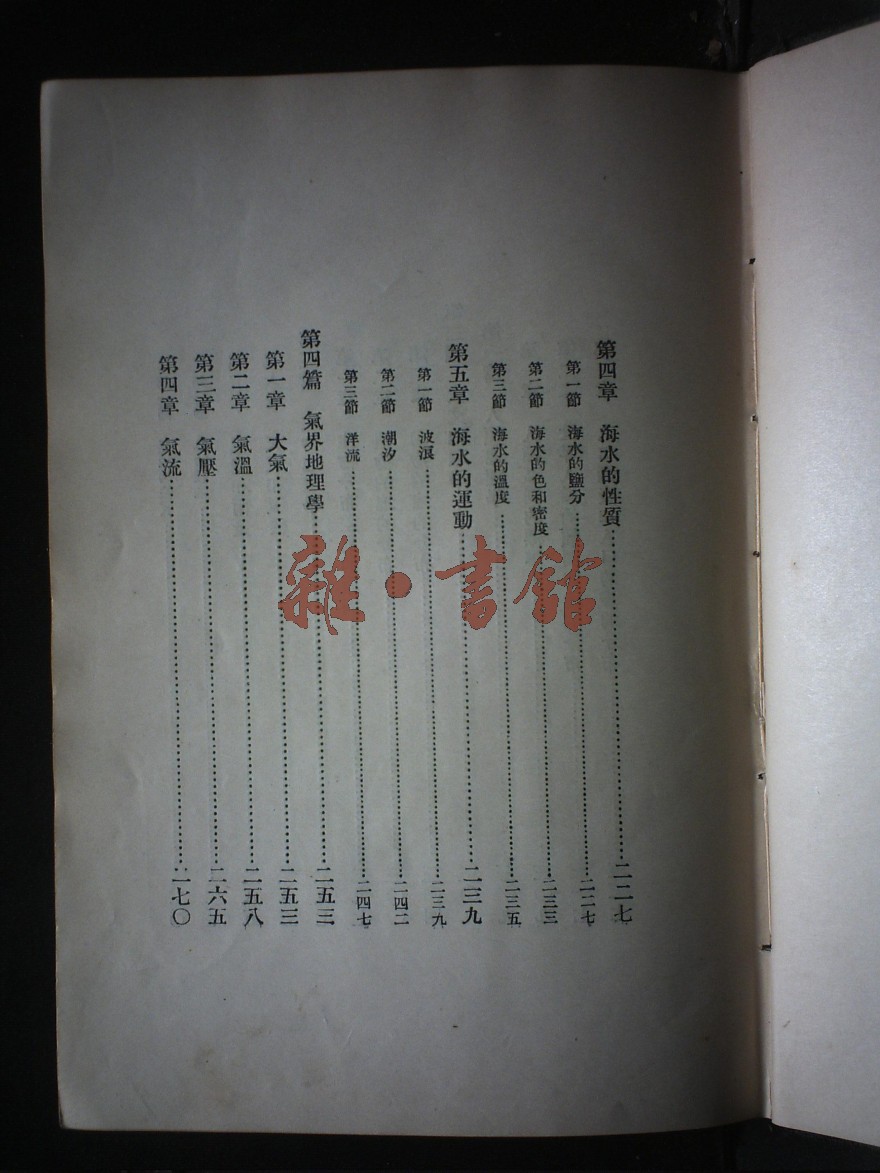 第四章 海水的性質……二二七
第一節 海水的鹽分……二二七
第二節 海水的色和密度……二三三
第三節 海水的溫度……二三五
第五章 海水的運動……二三九
第一節 波浪……二三九
第二節 潮汐……二四二
第三節 洋流……二四七
第四篇 氣界地理學……二五三
第一章 大氣……二五三
第二章 氣溫……二五八
第三章 氣壓……二六五
第四章 氣流……二七〇
雜·書館